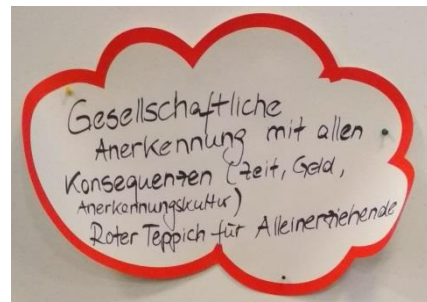 Gesellschaftliche
Anerkennung mit allen
Konsequenzen (Zeit, Geld,
Anerkennungskultur)
Roter Teppich für Alleinerziehende